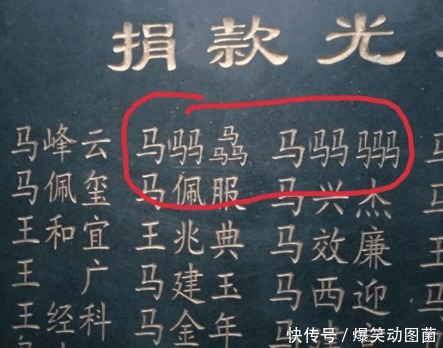 捐款光
马峰云 马骉 马
马佩玺 马佩服 马兴杰
王和宜 王兆典 马效廉
王广 马建玉 马西迎
王经科 马金年
快传号/爆笑动图菌